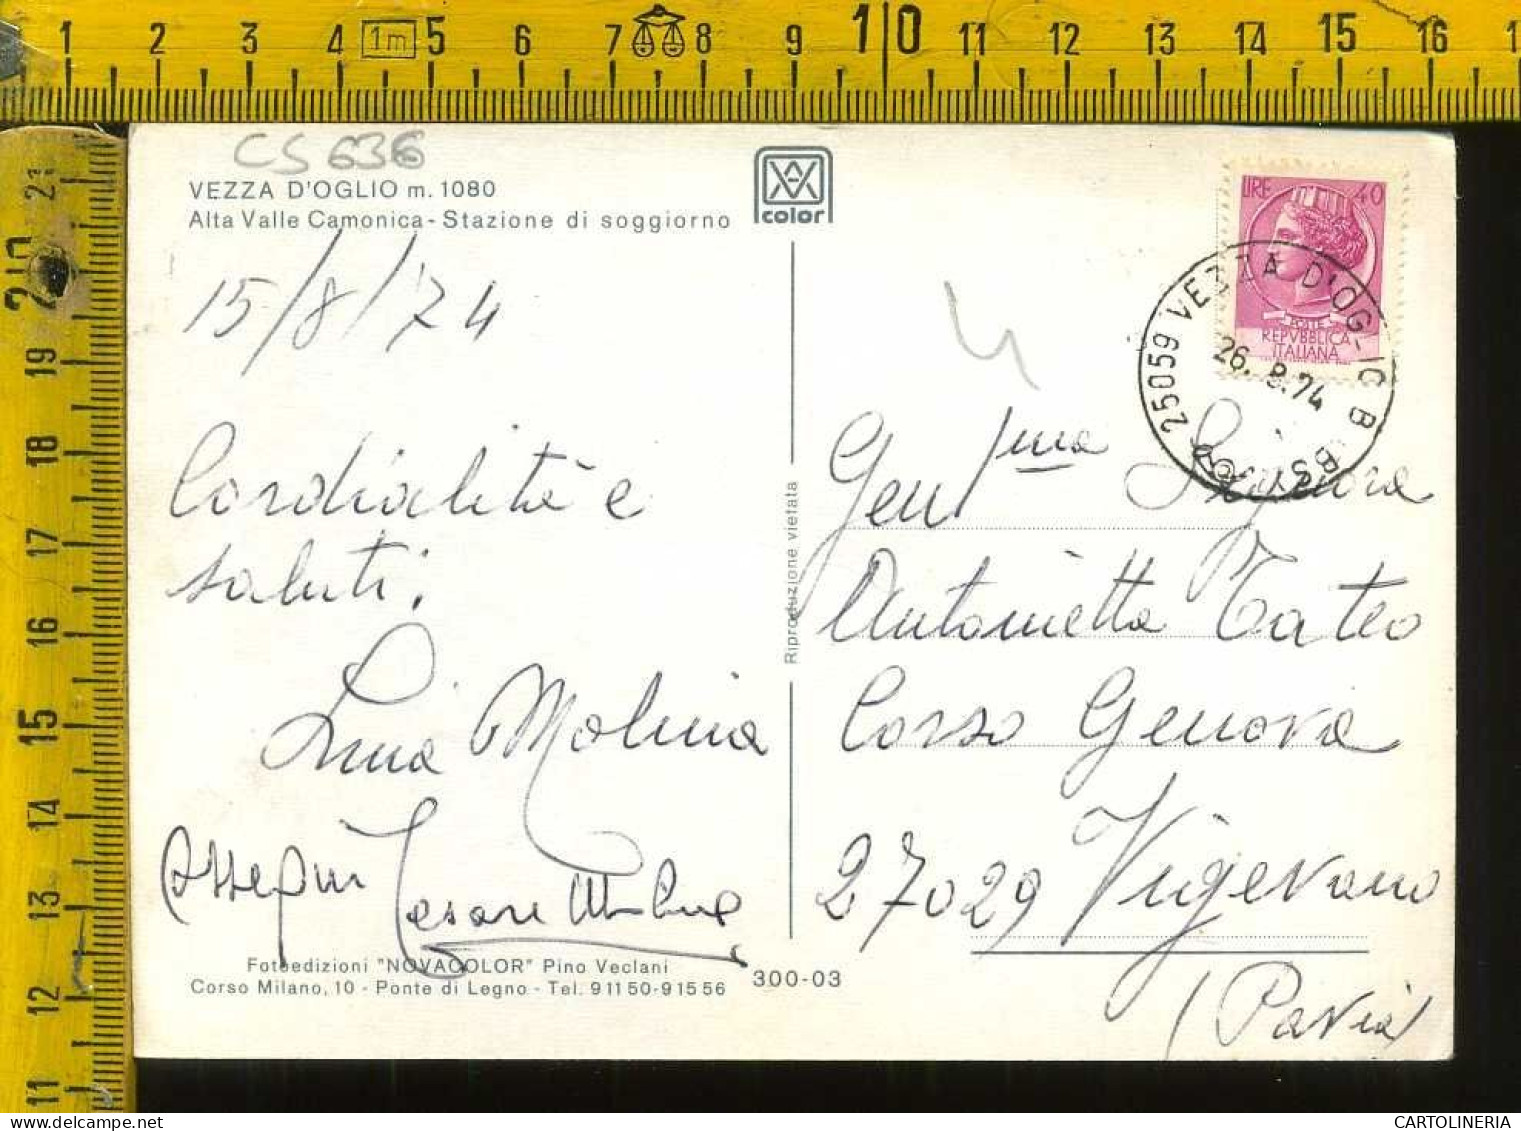 1 2 3 4 1m 5 6 7 8 9 10 11 12 13 14 15 16 1
21
20
19
18
17
16
15
14
13
12
11
CS 636
VEZZA D'OGLIO m. 1080
Alta Valle Camonica - Stazione di soggiorno
color
15/8/74
Cordialità e
saluti.
Lina Molina
Cesare
Fotoedizioni "NOVACOLOR" Pino Veclani
Corso Milano, 10 - Ponte di Legno - Tel. 91150-91556
300-03
Riproduzione vietata
LIRE 40
POSTE
REPVBBLICA
ITALIANA
25059 VEZZA D'OGLIO B BS
26. 8.74
Gen/ma Signora
Antonietta Tateo
Corso Genova
27029 Vigevano
(Pavia)
CARTOLINERIA